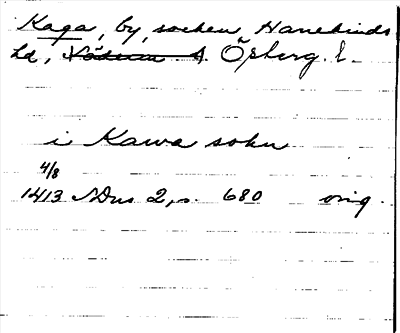 Kaga, by, socken, Hanekinds
hd, Ösberg. l.
i Kawa sokn
4/8
1413 SDns 2, s. 680 orig.